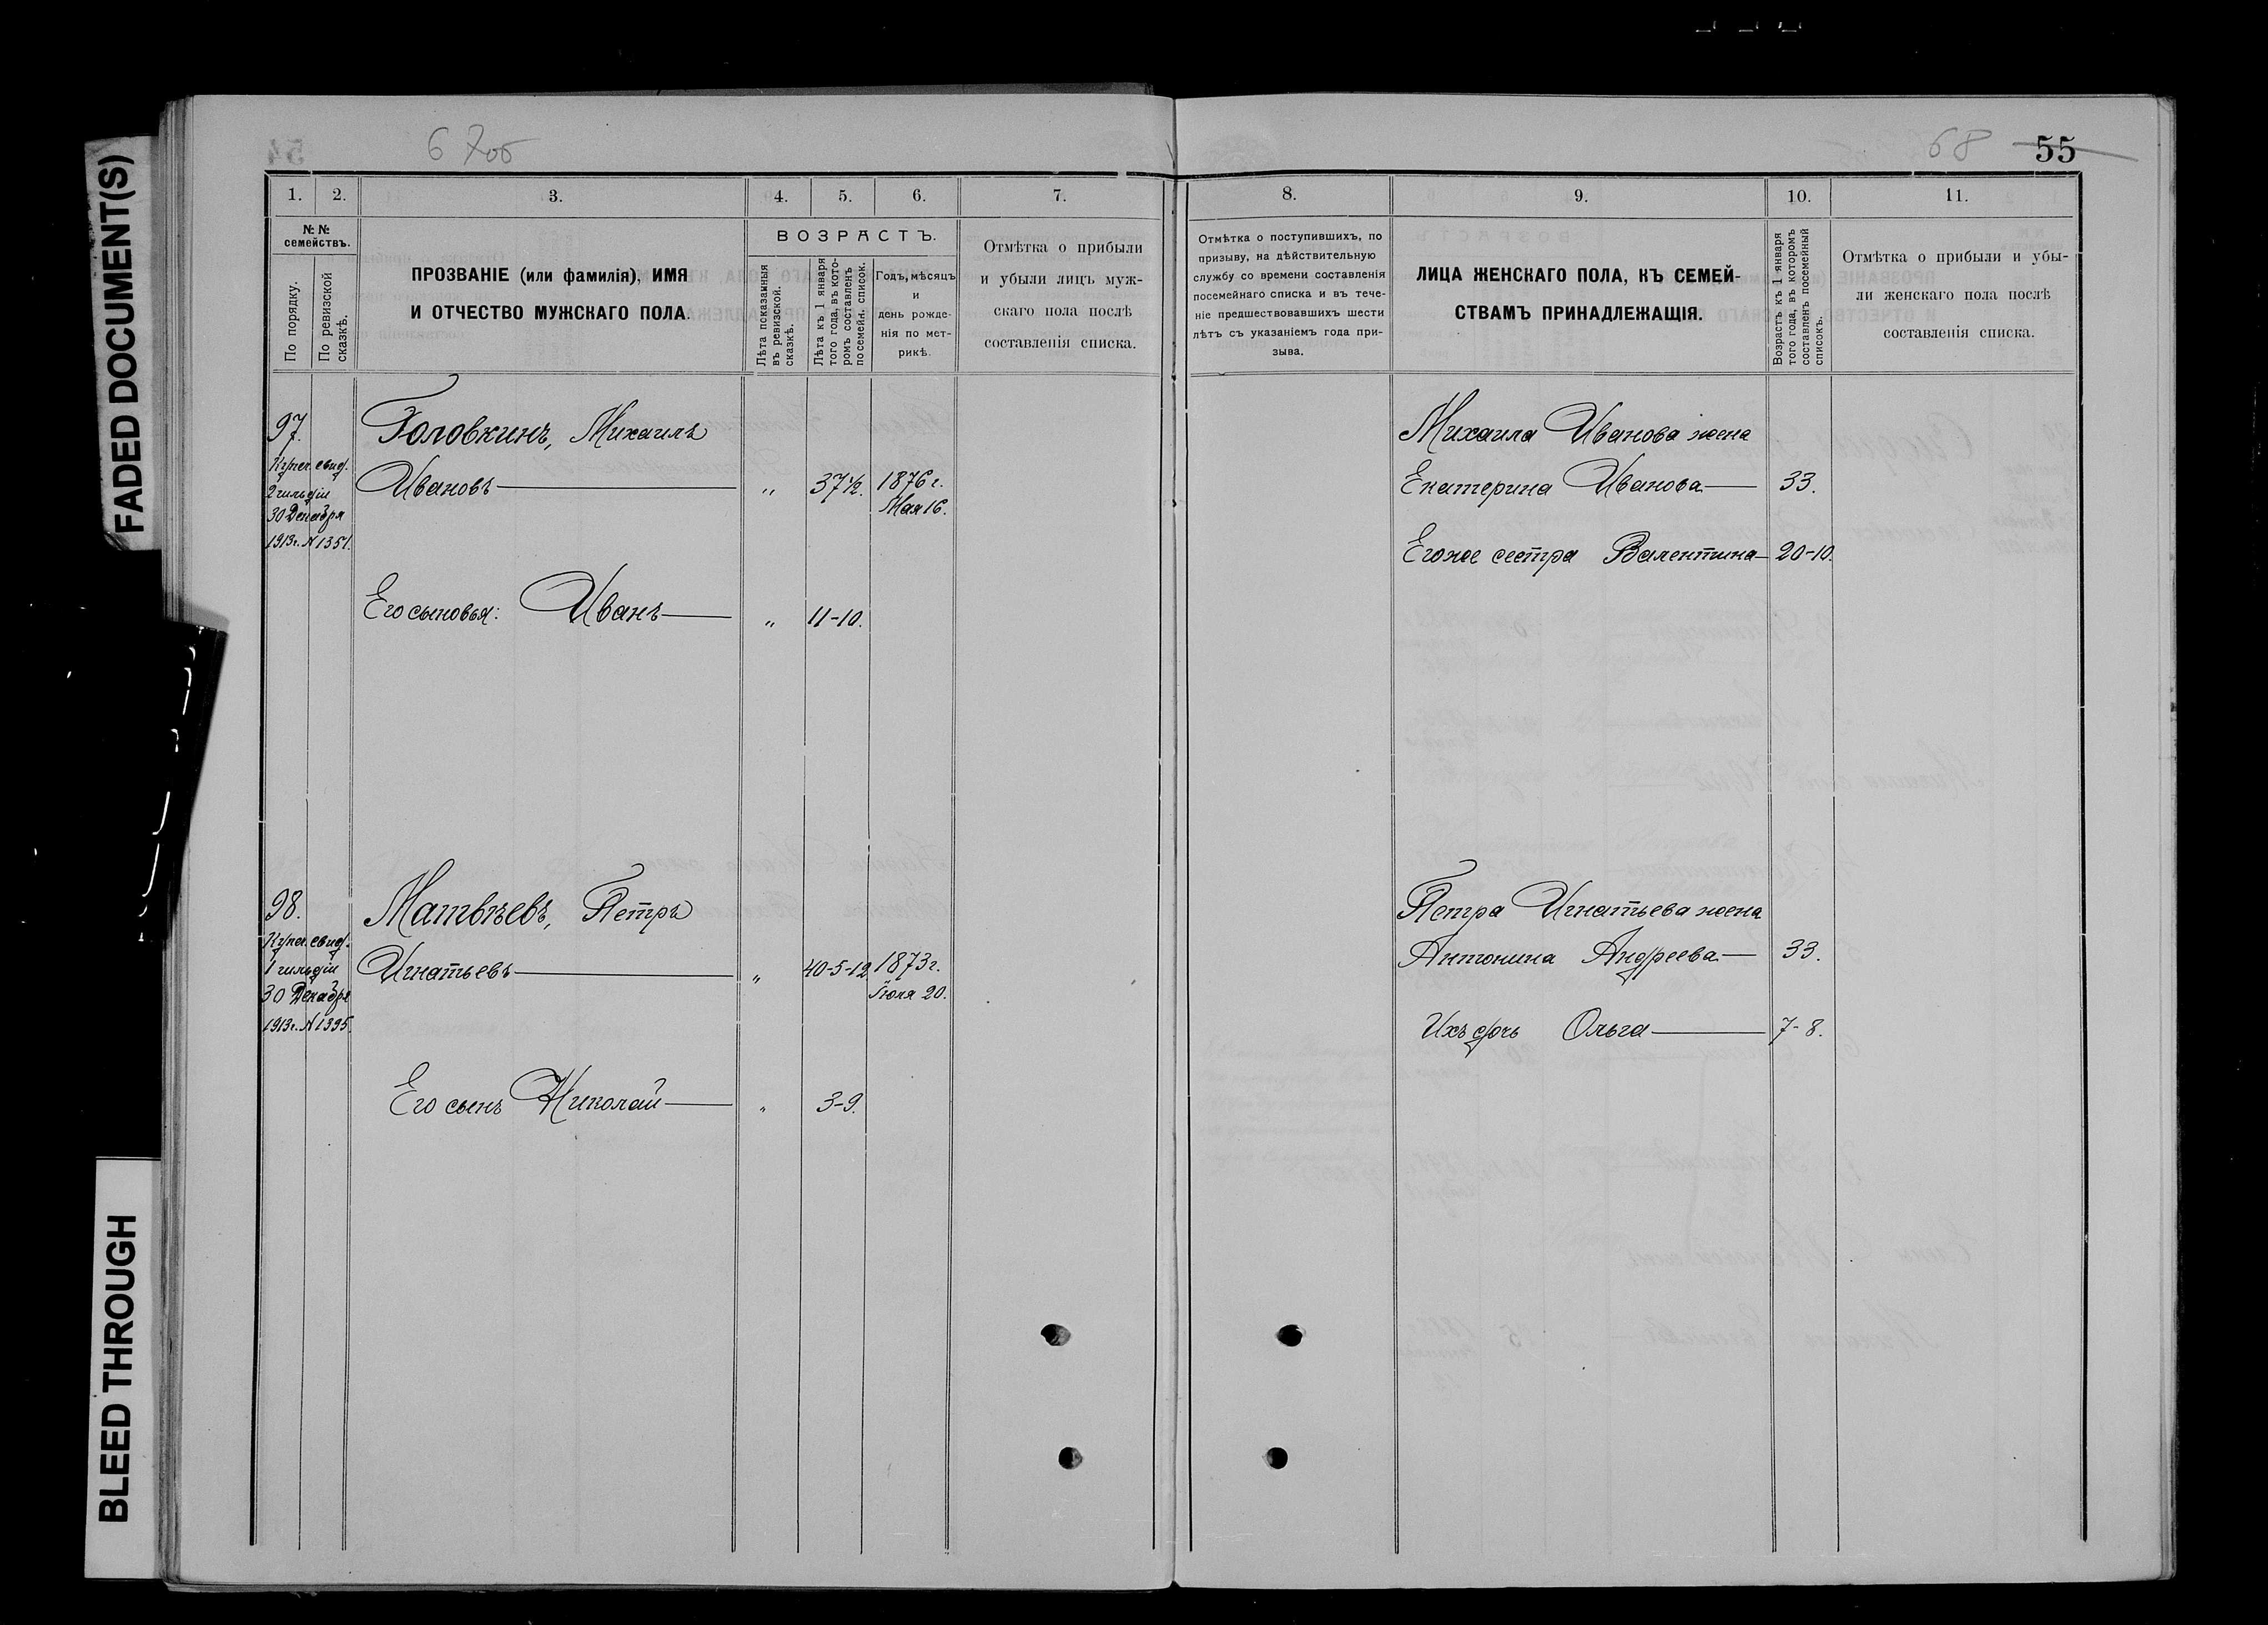 FADED DOCUMENT(S)
BLEED THROUGH
67об
68 55
1. 2. 3. 4. 5. 6. 7.
№ №
семействъ.
По порядку.
По ревизской
сказкѣ.
ПРОЗВАНІЕ (или фамилія), ИМЯ
И ОТЧЕСТВО МУЖСКАГО ПОЛА.
ВОЗРАСТЪ.
Лѣта показанныя
въ ревизской.
сказкѣ.
Лѣта къ 1 января
того года, въ кото-
ромъ составленъ
посемейн. список.
Годъ, мѣсяцъ
и
день рожде-
нія по мет-
рикѣ.
Отмѣтка о прибыли
и убыли лицъ муж-
скаго пола послѣ
составленія списка.
97.
Купеч. свид.
2 гильдіи
30 Декабря
1913г. № 1351.
Головкинъ, Михаилъ
Ивановъ — „ 37½. 1876 г.
Мая 16.
Его сыновья: Иванъ — „ 11-10.
98.
Купеч. свид.
1 гильдіи
30 Декабря
1913г. № 1395.
Матвѣевъ, Петръ
Игнатьевъ — „ 40-5-12 1873г.
Іюля 20.
Его сынъ Николай — „ 3-9.
8. 9. 10. 11.
Отмѣтка о поступившихъ, по
призыву, на дѣйствительную
службу со времени составленія
посемейнаго списка и въ тече-
ніе предшествовавшихъ шести
лѣтъ съ указаніемъ года при-
зыва.
ЛИЦА ЖЕНСКАГО ПОЛА, КЪ СЕМЕЙ-
СТВАМЪ ПРИНАДЛЕЖАЩІЯ.
Возрастъ къ 1 января
того года, въ которомъ
составленъ посемейный
списокъ.
Отмѣтка о прибыли и убы-
ли женскаго пола послѣ
составленія списка.
Михаила Иванова жена
Екатерина Иванова — 33.
Его же сестра Валентина — 20-10.
Петра Игнатьева жена
Антонина Андреева — 33.
Ихъ дочь Ольга — 7-8.